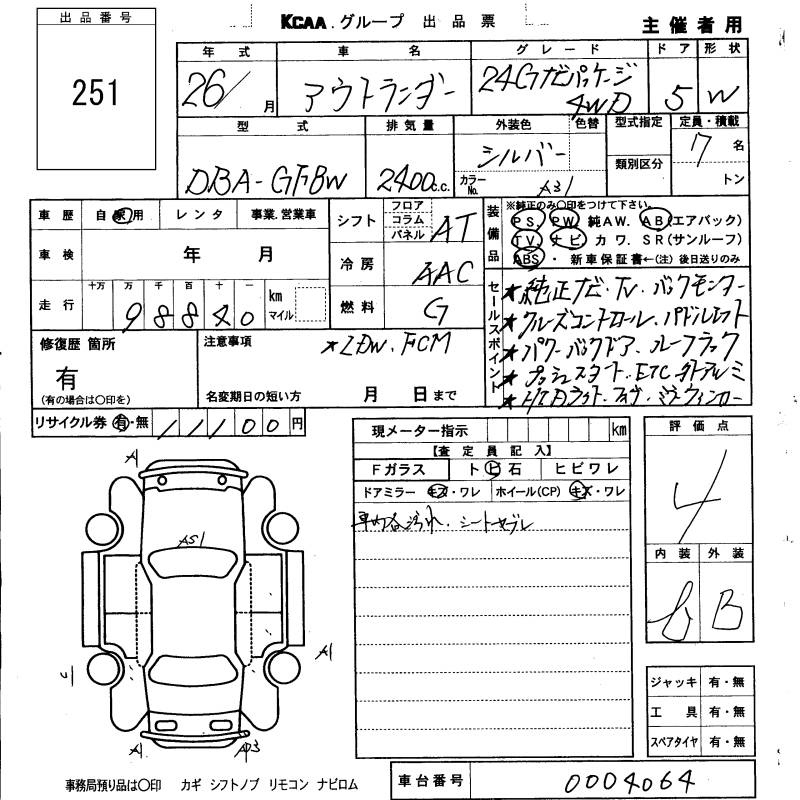 出品番号
251
KCAA グループ 出品票
主催者用
年式 車名 グレード ドア 形状
26/ 月 アウトランダー 24Gナビパッケージ 4WD 5 W
型式 排気量 外装色 色替 型式指定 定員・積載
DBA-GF8W 2400 c.c. シルバー カラーNo. A31 類別区分 7 名
トン
車歴 自家用 レンタ 事業.営業車 シフト フロア コラム パネル AT
車検 年 月 冷房 AAC
走行 十万 万 千 百 十 一 98840 km マイル 燃料 G
装備品 ※純正のみ〇印をつけて下さい。
PS. PW 純AW. AB(エアバック)
TV. ナビ カワ. SR(サンルーフ)
ABS・新車保証書←(注) 後日送りのみ
セールスポイント
★純正ナビ.TV.バックモニター
★クルーズコントロール.パドルシフト
★パワーバックドア.ルーフラック
★プッシュスタート.ETC.外アルミ
修復歴 箇所 有 (有の場合は〇印を)
注意事項 ★LDW.FCM
名変期日の短い方 月 日まで
リサイクル券 有・無 11100円
現メーター指示 km
【査定員記入】
Fガラス トビ石 ヒビワレ
ドアミラー キズ・ワレ ホイール(CP) キズ・ワレ
車内各汚れ.シートスレ
評価点
4
内装 外装
B
A
AS1
A1
A1
ジャッキ 有・無
工具 有・無
スペアタイヤ 有・無
事務局預り品は〇印 カギ シフトノブ リモコン ナビロム
車台番号 0004064